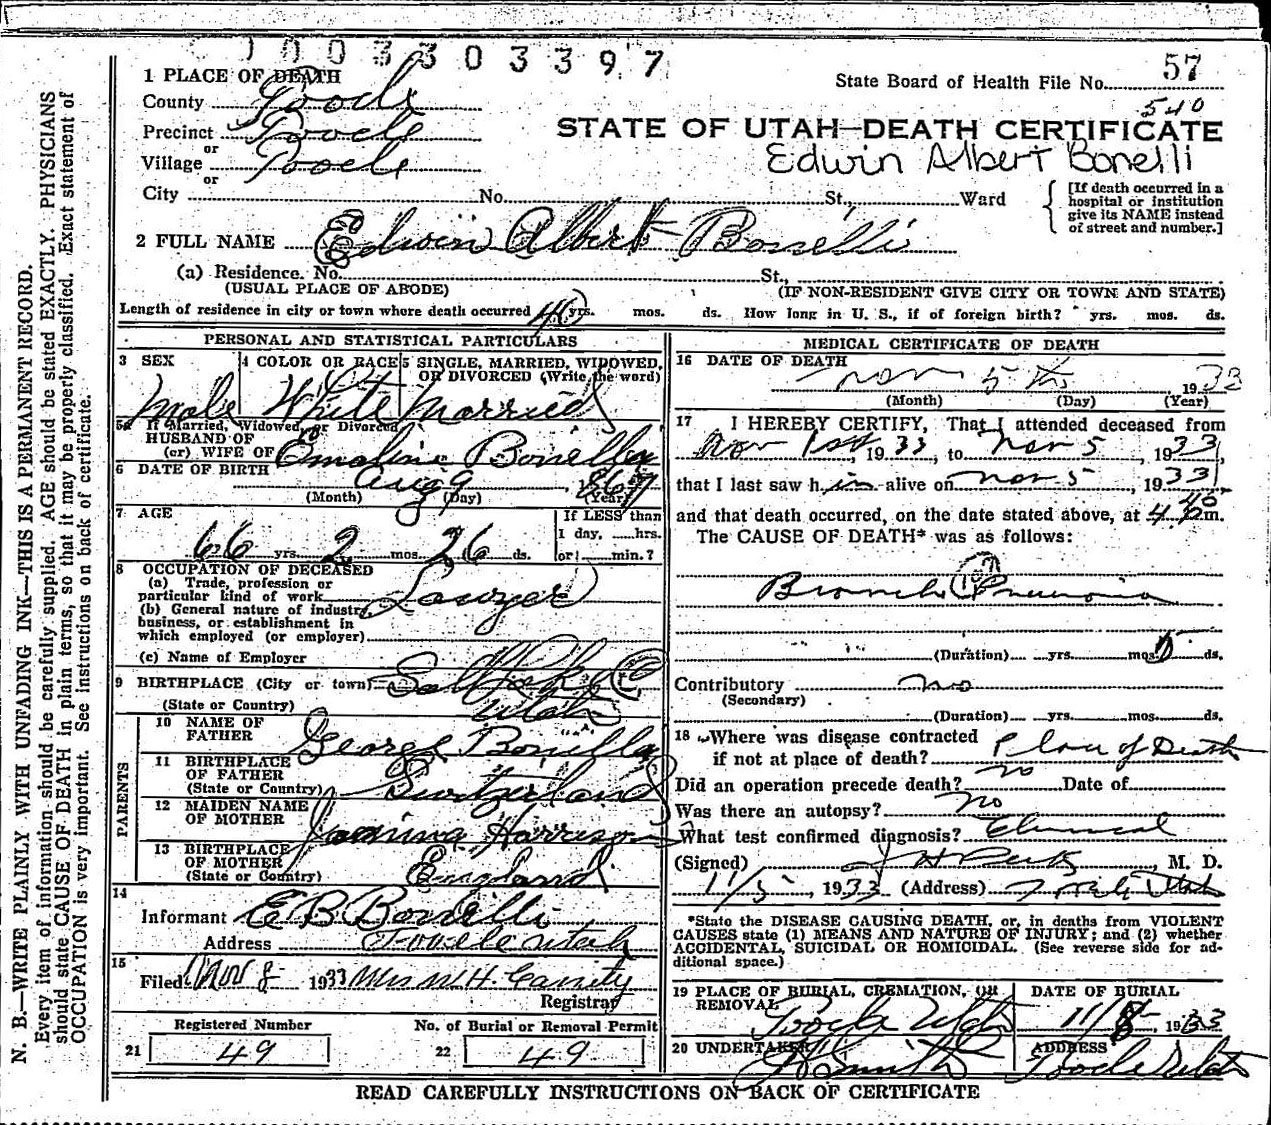 1003303397
1 PLACE OF DEATH
State Board of Health File No. 57
County Tooele
540
Precinct Tooele
STATE OF UTAH—DEATH CERTIFICATE
or
Village Tooele
Edwin Albert Bonelli
or
City No. St., Ward
[If death occurred in a
hospital or institution
give its NAME instead
of street and number.]
2 FULL NAME Edwin Albert Bonelli
(a) Residence. No. St.,
(USUAL PLACE OF ABODE) (IF NON-RESIDENT GIVE CITY OR TOWN AND STATE)
Length of residence in city or town where death occurred yrs. mos. ds. How long in U. S., if of foreign birth? yrs. mos. ds.
PERSONAL AND STATISTICAL PARTICULARS
3 SEX 4 COLOR OR RACE 5 SINGLE, MARRIED, WIDOWED,
OR DIVORCED (Write the word)
Male White Married
5a If Married, Widowed, or Divorced
HUSBAND OF
(or) WIFE OF Emeline Bonelli
6 DATE OF BIRTH Aug 9, 1867
(Month) (Day) (Year)
7 AGE If LESS than
1 day, hrs.
66 yrs. 2 mos. 26 ds. or min.?
8 OCCUPATION OF DECEASED
(a) Trade, profession or
particular kind of work Lawyer
(b) General nature of industry,
business, or establishment in
which employed (or employer)
(c) Name of Employer
9 BIRTHPLACE (City or town) Salt Lake C
(State or Country) Utah
PARENTS
10 NAME OF
FATHER George Bonelli
11 BIRTHPLACE
OF FATHER
(State or Country) Switzerland
12 MAIDEN NAME
OF MOTHER Harrison
13 BIRTHPLACE
OF MOTHER
(State or Country) England
14
Informant E B Bonelli
Address Tooele Utah
15
Filed Nov 8 1933 Mrs W. H. Cassity
Registrar
Registered Number No. of Burial or Removal Permit
21 49 22 49
MEDICAL CERTIFICATE OF DEATH
16 DATE OF DEATH
Nov 5th 1933
(Month) (Day) (Year)
17 I HEREBY CERTIFY, That I attended deceased from
Nov 1st 1933, to Nov 5, 1933,
that I last saw h im alive on Nov 5, 1933
and that death occurred, on the date stated above, at 4 45 m.
The CAUSE OF DEATH* was as follows:
107
Broncho Pneumonia
(Duration) yrs. mos. ds.
Contributory no
(Secondary)
(Duration) yrs. mos. ds.
18 Where was disease contracted
if not at place of death? Place of Death
Did an operation precede death? no Date of
Was there an autopsy? no
What test confirmed diagnosis? Clinical
(Signed) J H Peck, M. D.
11/5, 1933 (Address) Tooele Utah
*State the DISEASE CAUSING DEATH, or, in deaths from VIOLENT
CAUSES state (1) MEANS AND NATURE OF INJURY; and (2) whether
ACCIDENTAL, SUICIDAL OR HOMICIDAL. (See reverse side for ad-
ditional space.)
19 PLACE OF BURIAL, CREMATION, OR
REMOVAL DATE OF BURIAL
Tooele Utah 11/8, 1933
20 UNDERTAKER ADDRESS
Smith Tooele Utah
READ CAREFULLY INSTRUCTIONS ON BACK OF CERTIFICATE
N. B.—WRITE PLAINLY WITH UNFADING INK—THIS IS A PERMANENT RECORD.
Every item of information should be carefully supplied. AGE should be stated EXACTLY. PHYSICIANS
should state CAUSE OF DEATH in plain terms, so that it may be properly classified. Exact statement of
OCCUPATION is very important. See instructions on back of certificate.